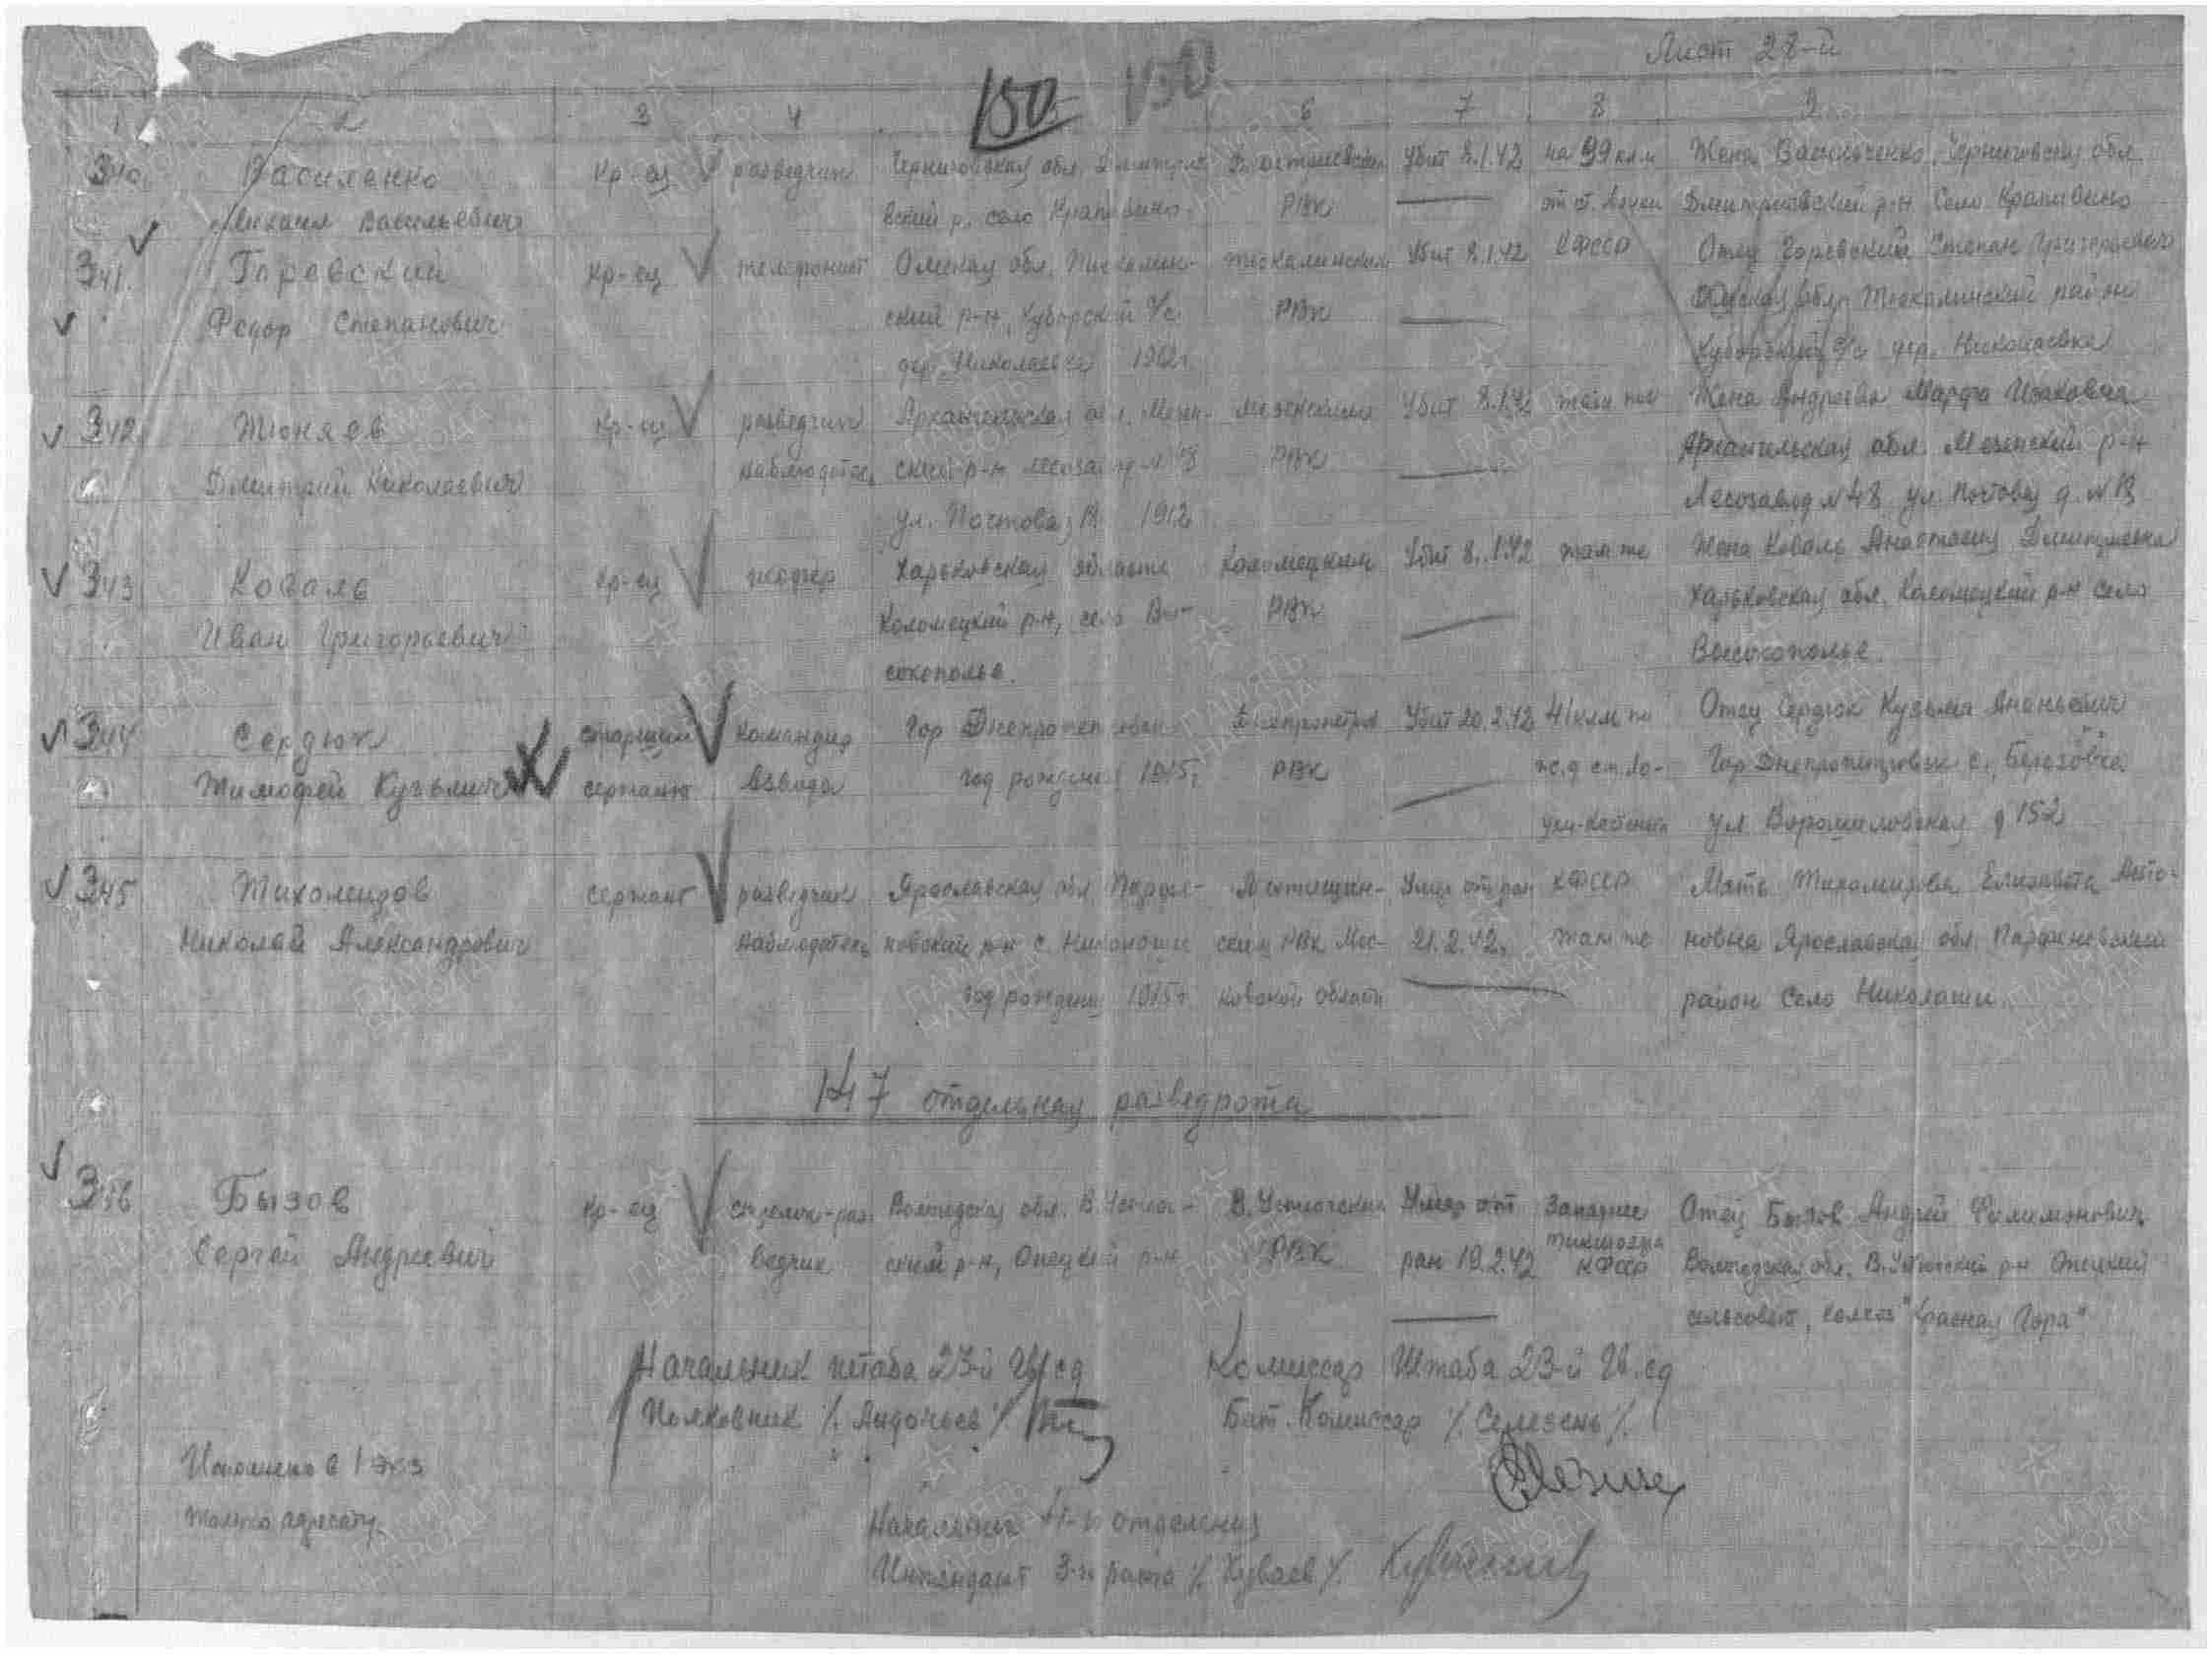 Лист 28-й
150 150
1 2 3 4 6 7 8 9
340 Василенко Кр-ец разведчик Черниговская обл. Дмитриев Убит 8.1.42 на 99 клм Жена Васильченко, Черниговская обл.
Михаил Васильевич ский р. село Крапивино РВК от ст. Лоухи Дмитриевский р-н Село Крапивино
341. Горевский Кр-ец телефонист Омская обл. Тюкалин- Тюкалинским Убит 8.1.42 КФССР Отец Горевский Степан Григорьевич
Федор Степанович ский р-н, с/с. РВК Омская обл. Тюкалинский район
дер. Николаевка с/с дер. Николаевка
342 Тюняев Кр-ец разведчик Архангельская обл. Мезен- Мезенским Убит 8.1.42 там же Жена Андреева Марфа Исаковна
Дмитрий Николаевич наблюдатель ский р-н РВК Архангельская обл. Мезенский р-н
ул. Почтовая 1912 Лесозавод № 48 ул. Почтовая д. №
343 Коваль Кр-ец шофер Харьковская область Коломацким Убит 8.1.42 там же Жена Коваль Анастасия Дмитриевна
Иван Григорьевич Коломецкий р-н, село Вы- РВК Харьковская обл. Коломецкий р-н село
сокополье. Высокополье.
344 Сердюк старший командир Гор Днепропетровск Днепропетров Убит 20.2.42 41 клм по Отец Сердюк Кузьма Ананьевич
Тимофей Кузьмич сержант взвода год рождения 1915г РВК ж.д ст. Ло- Гор Днепропетровск с. Березовка
ухи-Кестеньга ул Ворошиловская д 152
345 Тихомиров сержант разведчик Ярославская обл. Мытищин- Умер от ран КФССР Мать Тихомирова Елизавета Анто-
Николай Александрович наблюдатель р-н с. ским РВК Мос- 21.2.42. там же новна Ярославская обл.
год рождения 1915г. ковской области район Село Николаши
147 отдельная разведрота
346 Бызов Кр-ец стрелок-раз. Вологодская обл. В.Устюг- В.Устюгским Умер от Западнее Отец Бызов Андрей Филимонович
Сергей Андреевич ведчик ский р-н, р-н РВК ран 19.2.42 КФССР Вологодская обл. В.Устюгский р-н
сельсовет, колхоз "Красная Гора"
Начальник штаба 23-й Гв.сд Комиссар Штаба 23-й Гв.сд
Полковник /. /. Бат. Комиссар /. Селезень /.
Исполнено в 1 экз
только адресату.
Начальник 4-го отделения
Интендант 3-го ранга /. Куваев /.